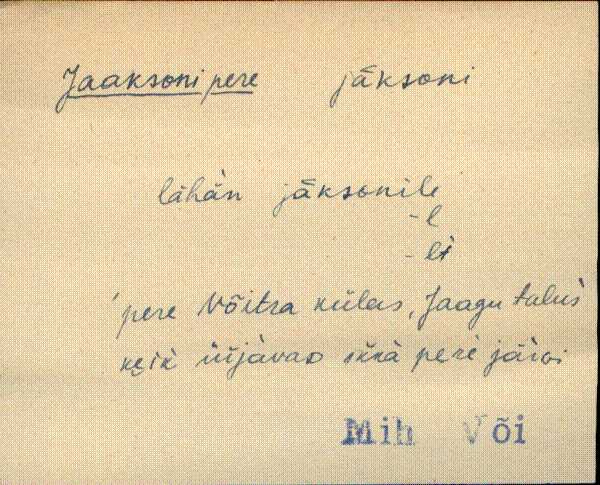 Jaaksoni pere jäksoni
lähän jäksonile
-l
-lt
'pere Võitra külas, Jaagu talus
keik üijavao ikka pere järvi
Mih Või